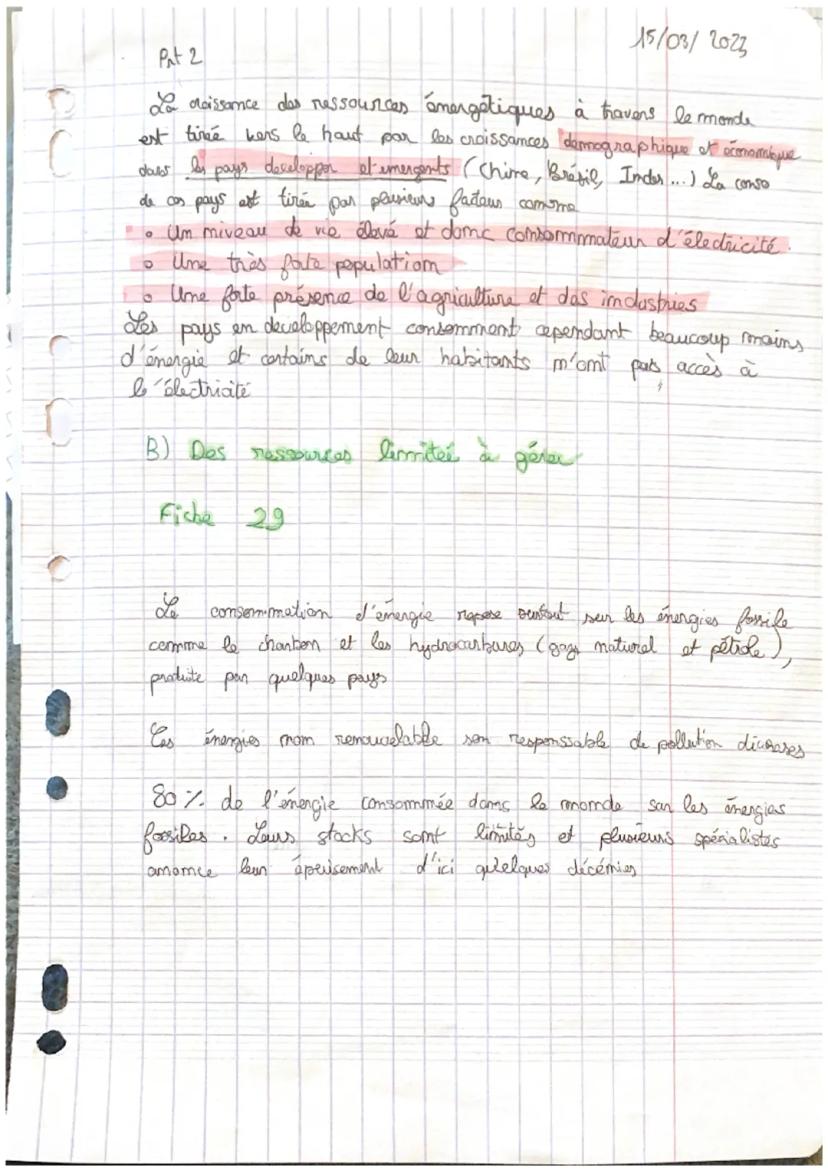 15/03/2023
Prt 2
La croissance des ressources énergétiques à travers le monde
est tirée vers le haut par les croissances démographique et économique
dans les pays developper et emergents (Chine, Brésil, Indes...) La conso
de ces pays est tirée par plusieurs facteurs comme
• Un niveau de vie élevé et donc consommateur d'électricité.
• Une très forte population
• Une forte présence de l'agriculture et des industries
Les pays en developpement consomment cependant beaucoup moins
d'énergie et certains de leur habitants n'ont pas accès à
l'électricité
B) Des ressources limitée à gérer
Fiche 29
La consommation d'énergie repose surtout sur les énergies fossile
comme le charbon et les hydrocarbures (gazs naturel et pétrole),
produite par quelques pays
Ces énergies non renouvelable son responssable de pollution diverses
80 % de l'énergie consommée dans le monde son les énergies
fossiles. Leurs stocks sont limités et plusieurs spécialistes
anonce leur épuisement d'ici quelques décénies